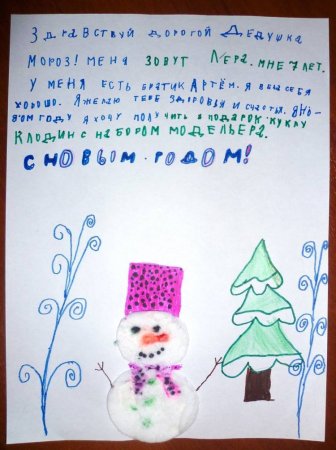 Здравствуй дорогой Дедушка
Мороз! меня зовут Лера. мне 7 лет.
У меня есть братик Артём. Я вела себя
хорошо. Я желаю тебе здоровья и счастья. в но-
вом году я хочу получить в подарок куклу
Клодин с набором модельера.
С НОВЫМ. ГОДОМ!